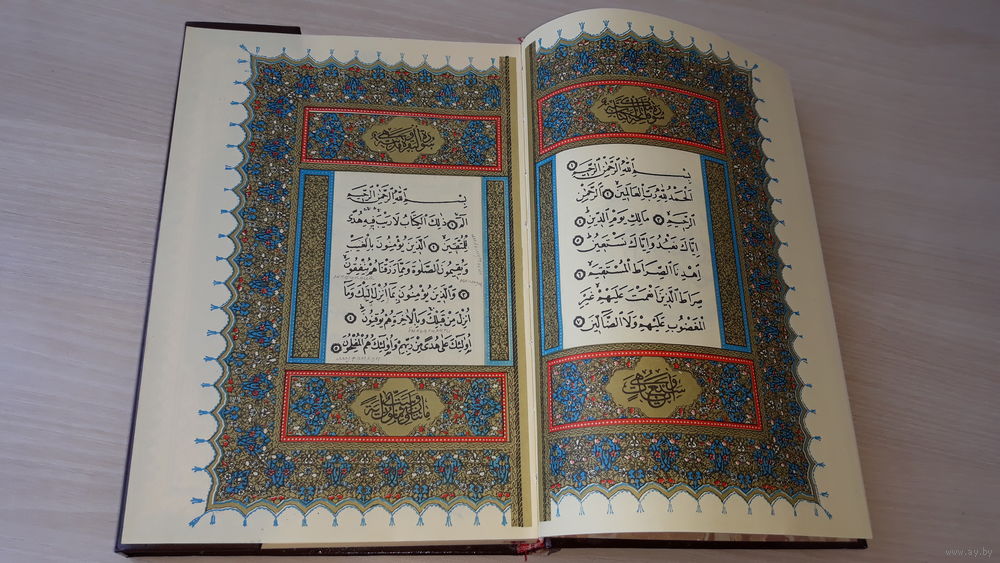 بِسْمِ اللّٰهِ الرَّحْمٰنِ الرَّحِيمِ ١
اَلْحَمْدُ لِلّٰهِ رَبِّ الْعَالَمِينَ ٢ اَلرَّحْمٰنِ
الرَّحِيمِ ٣ مَالِكِ يَوْمِ الدِّينِ ٤
اِيَّاكَ نَعْبُدُ وَاِيَّاكَ نَسْتَعِينُ ٥
اِهْدِنَا الصِّرَاطَ الْمُسْتَقِيمَ ٦
صِرَاطَ الَّذِينَ اَنْعَمْتَ عَلَيْهِمْ غَيْرِ
الْمَغْضُوبِ عَلَيْهِمْ وَلَا الضَّالِّينَ ٧
بِسْمِ اللّٰهِ الرَّحْمٰنِ الرَّحِيمِ
الٓمٓ ١ ذٰلِكَ الْكِتَابُ لَا رَيْبَ فِيهِ هُدًى
لِلْمُتَّقِينَ ٢ اَلَّذِينَ يُؤْمِنُونَ بِالْغَيْبِ
وَيُقِيمُونَ الصَّلٰوةَ وَمِمَّا رَزَقْنَاهُمْ يُنْفِقُونَ
٣ وَالَّذِينَ يُؤْمِنُونَ بِمَا اُنْزِلَ اِلَيْكَ وَمَا
اُنْزِلَ مِنْ قَبْلِكَ وَبِالْاٰخِرَةِ هُمْ يُوقِنُونَ ٤
اُولٰئِكَ عَلٰى هُدًى مِنْ رَبِّهِمْ وَاُولٰئِكَ هُمُ الْمُفْلِحُونَ ٥
www.ay.by